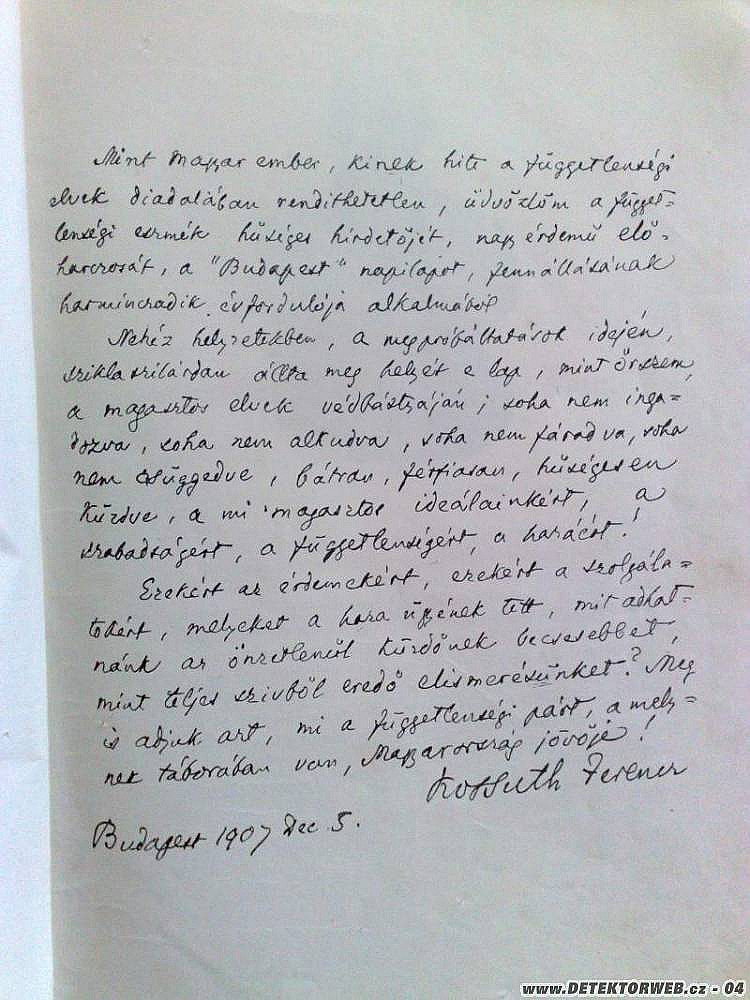 Mint magyar ember, kinek hite a függetlenségi
elvek diadalában rendithetetlen, üdvözlöm a függet-
lenségi eszmék hűséges hirdetőjét, nagy érdemű elő-
harczosát, a "Budapest" napilapot, fennállásának
harminczadik évfordulója alkalmából
Nehéz helyzetekben, a megpróbáltatások idején,
sziklaszilárdan állta meg helyét e lap, mint őrszem,
a magasztos elvek védbástyáján; soha nem inga-
dozva, soha nem alkudva, soha nem fáradva, soha
nem csüggedve, bátran, férfiasan, hűségesen
küzdve, a mi magasztos ideálainkért, a
szabadságért, a függetlenségért, a hazáért!
Ezekért az érdemekért, ezekért a szolgála-
tokért, melyeket a haza ügyének tett, mit adhat-
nánk az önzetlenül küzdőnek becsesebbet,
mint teljes szivből eredő elismerésünket? Meg
is adjuk azt, mi a függetlenségi párt, a mely-
nek táborában van, Magyarország jövője!
Kossuth Ferencz
Budapest 1907 Dec 5.
www.DETEKTORWEB.cz - 04